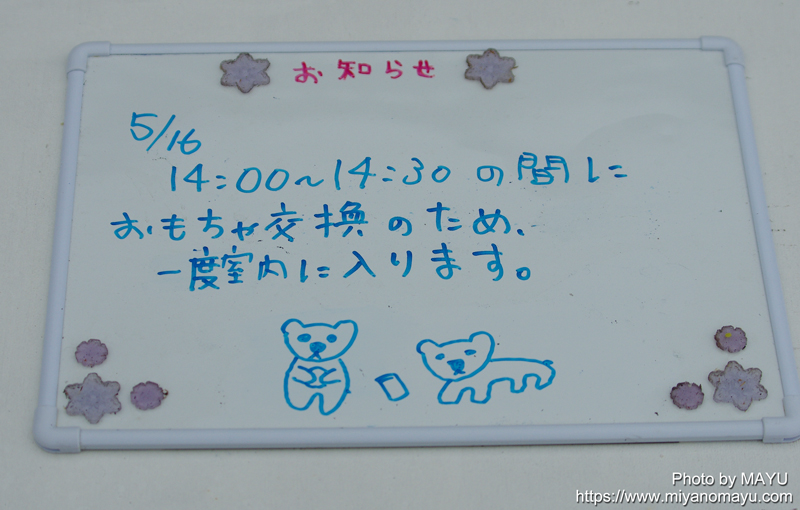 お知らせ
5/16
14:00~14:30の間に
おもちゃ交換のため、
一度室内に入ります。
Photo by MAYU
https://www.miyanomayu.com/